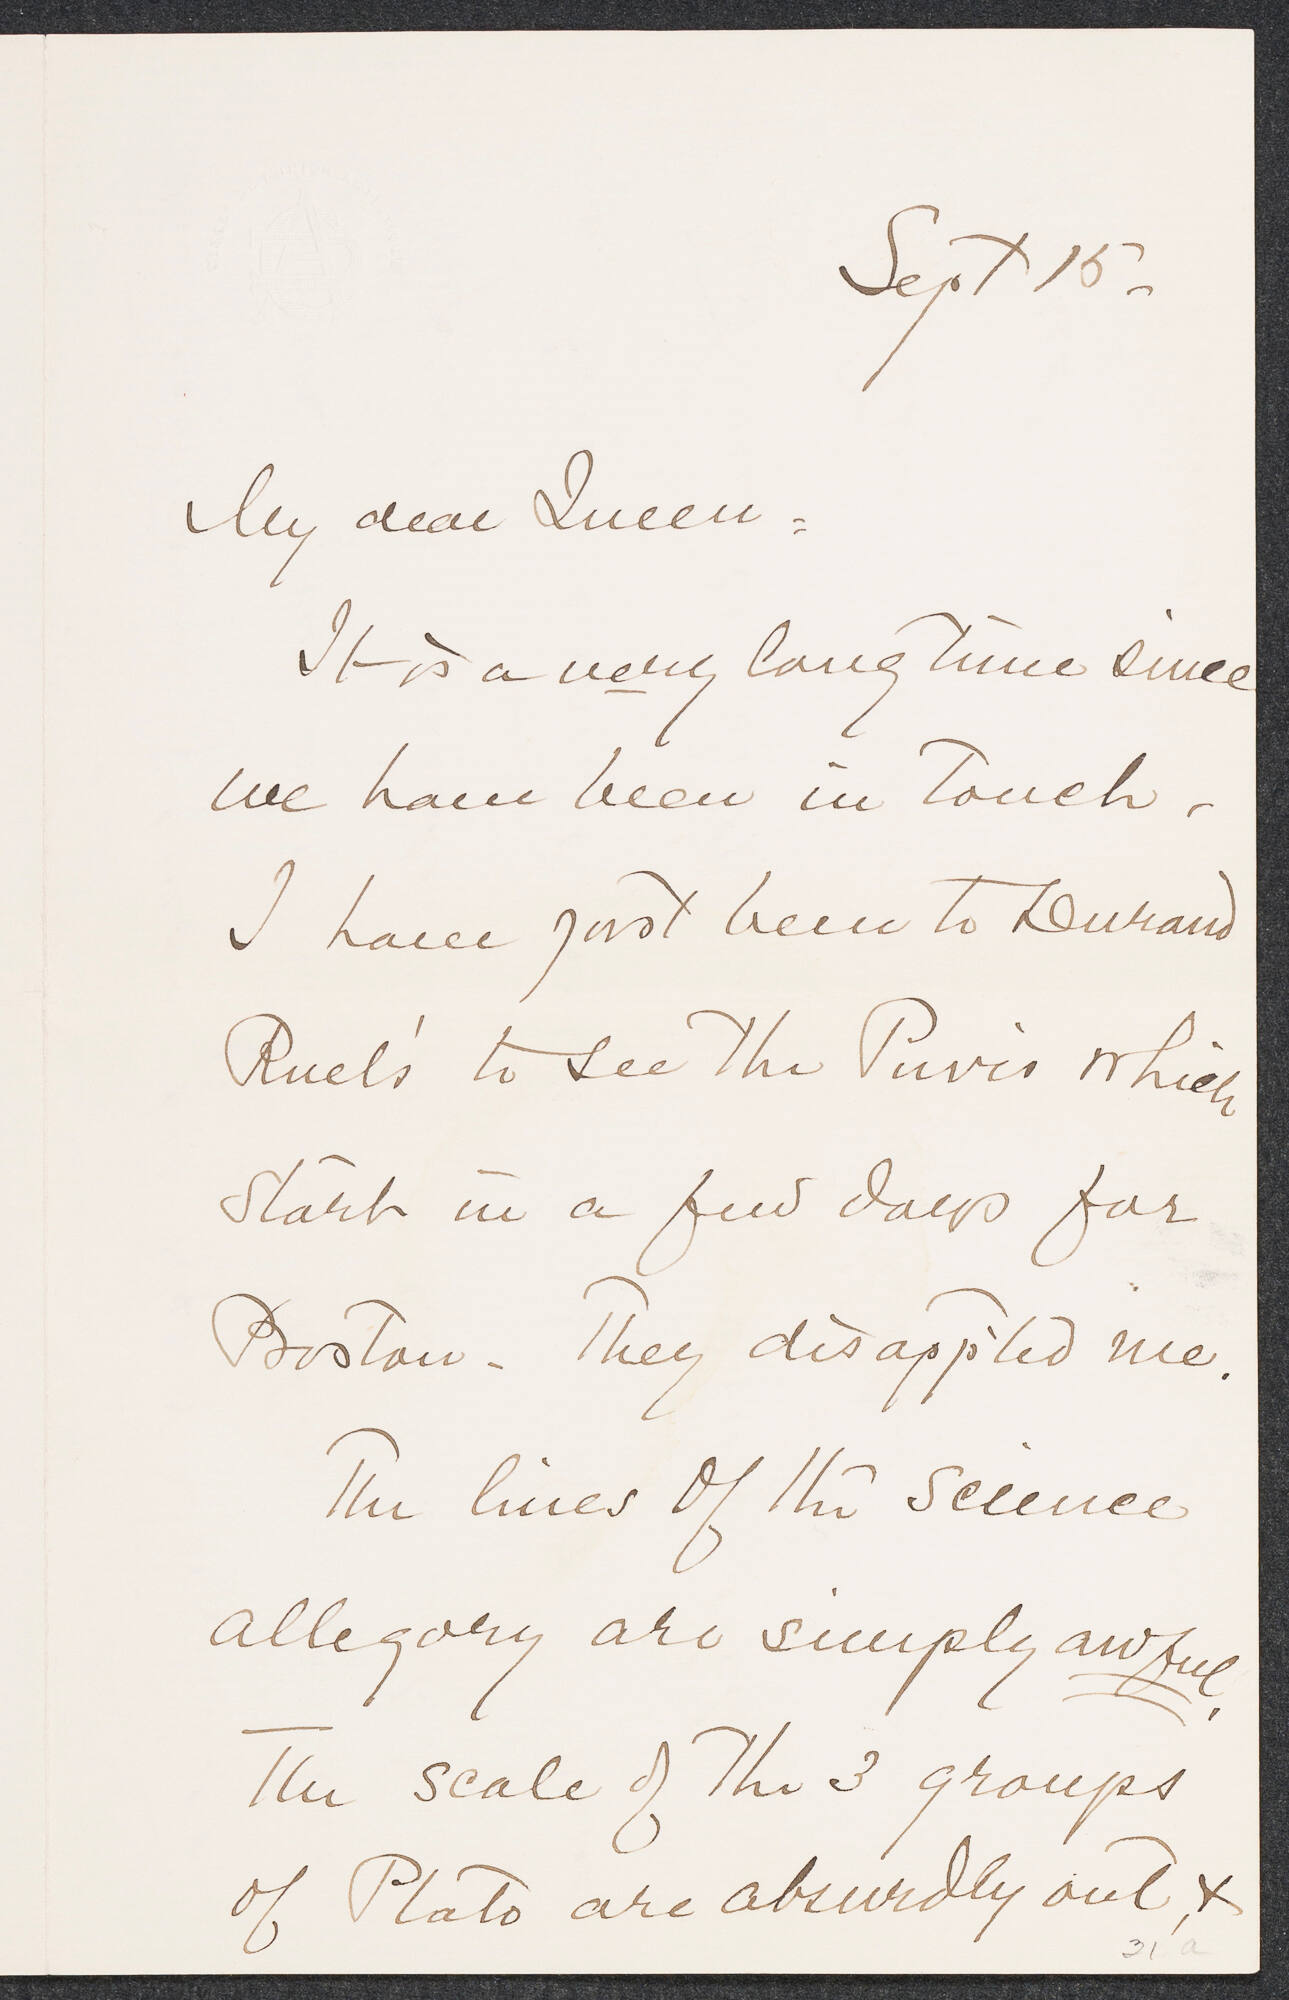 Sept 15-
My dear Queen-
It is a very long time since
we have been in touch-
I have just been to Durand
Ruel's to see the Puvis which
start in a few days for
Boston- They disapp'ted me.
The lines of the Science
allegory are simply awful.
The scale of the 3 groups
of Plato are absurdly out, &
31 a